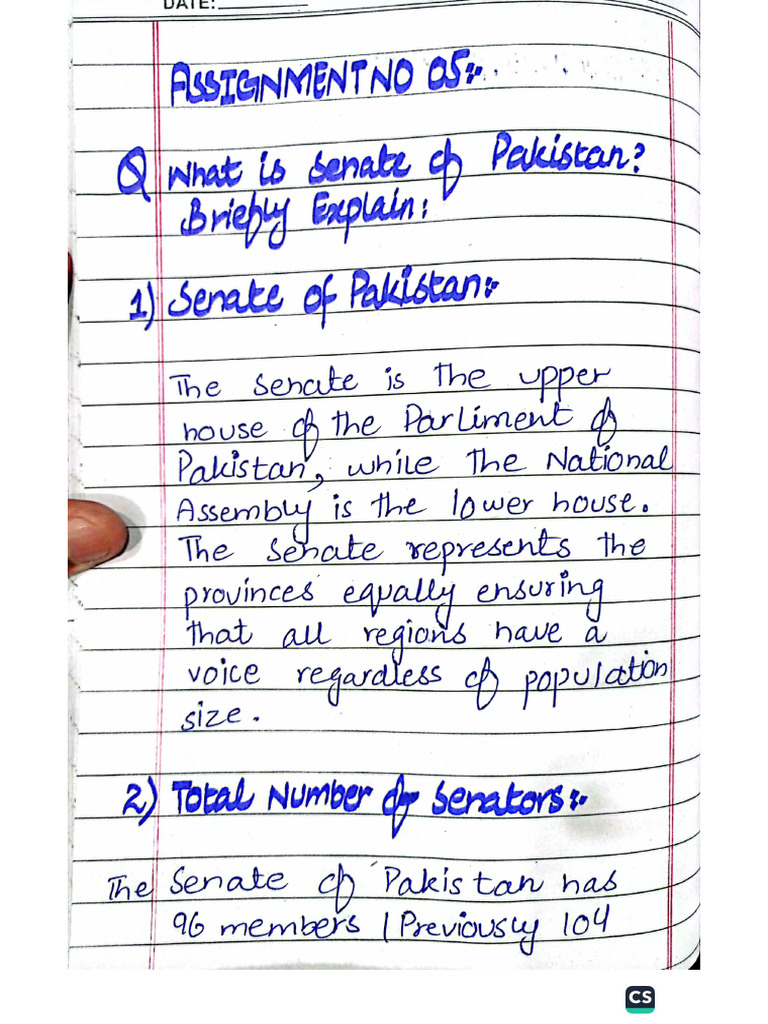 DATE:
ASSIGNMENT NO 05:-
Q What is Senate of Pakistan?
Briefly Explain:
1) Senate of Pakistan:-
The Senate is the upper
house of the Parliment of
Pakistan, while the National
Assembly is the lower house.
The Senate represents the
provinces equally ensuring
that all regions have a
voice regardless of population
size.
2) Total Number of Senators:-
The Senate of Pakistan has
96 members | Previously 104
CS